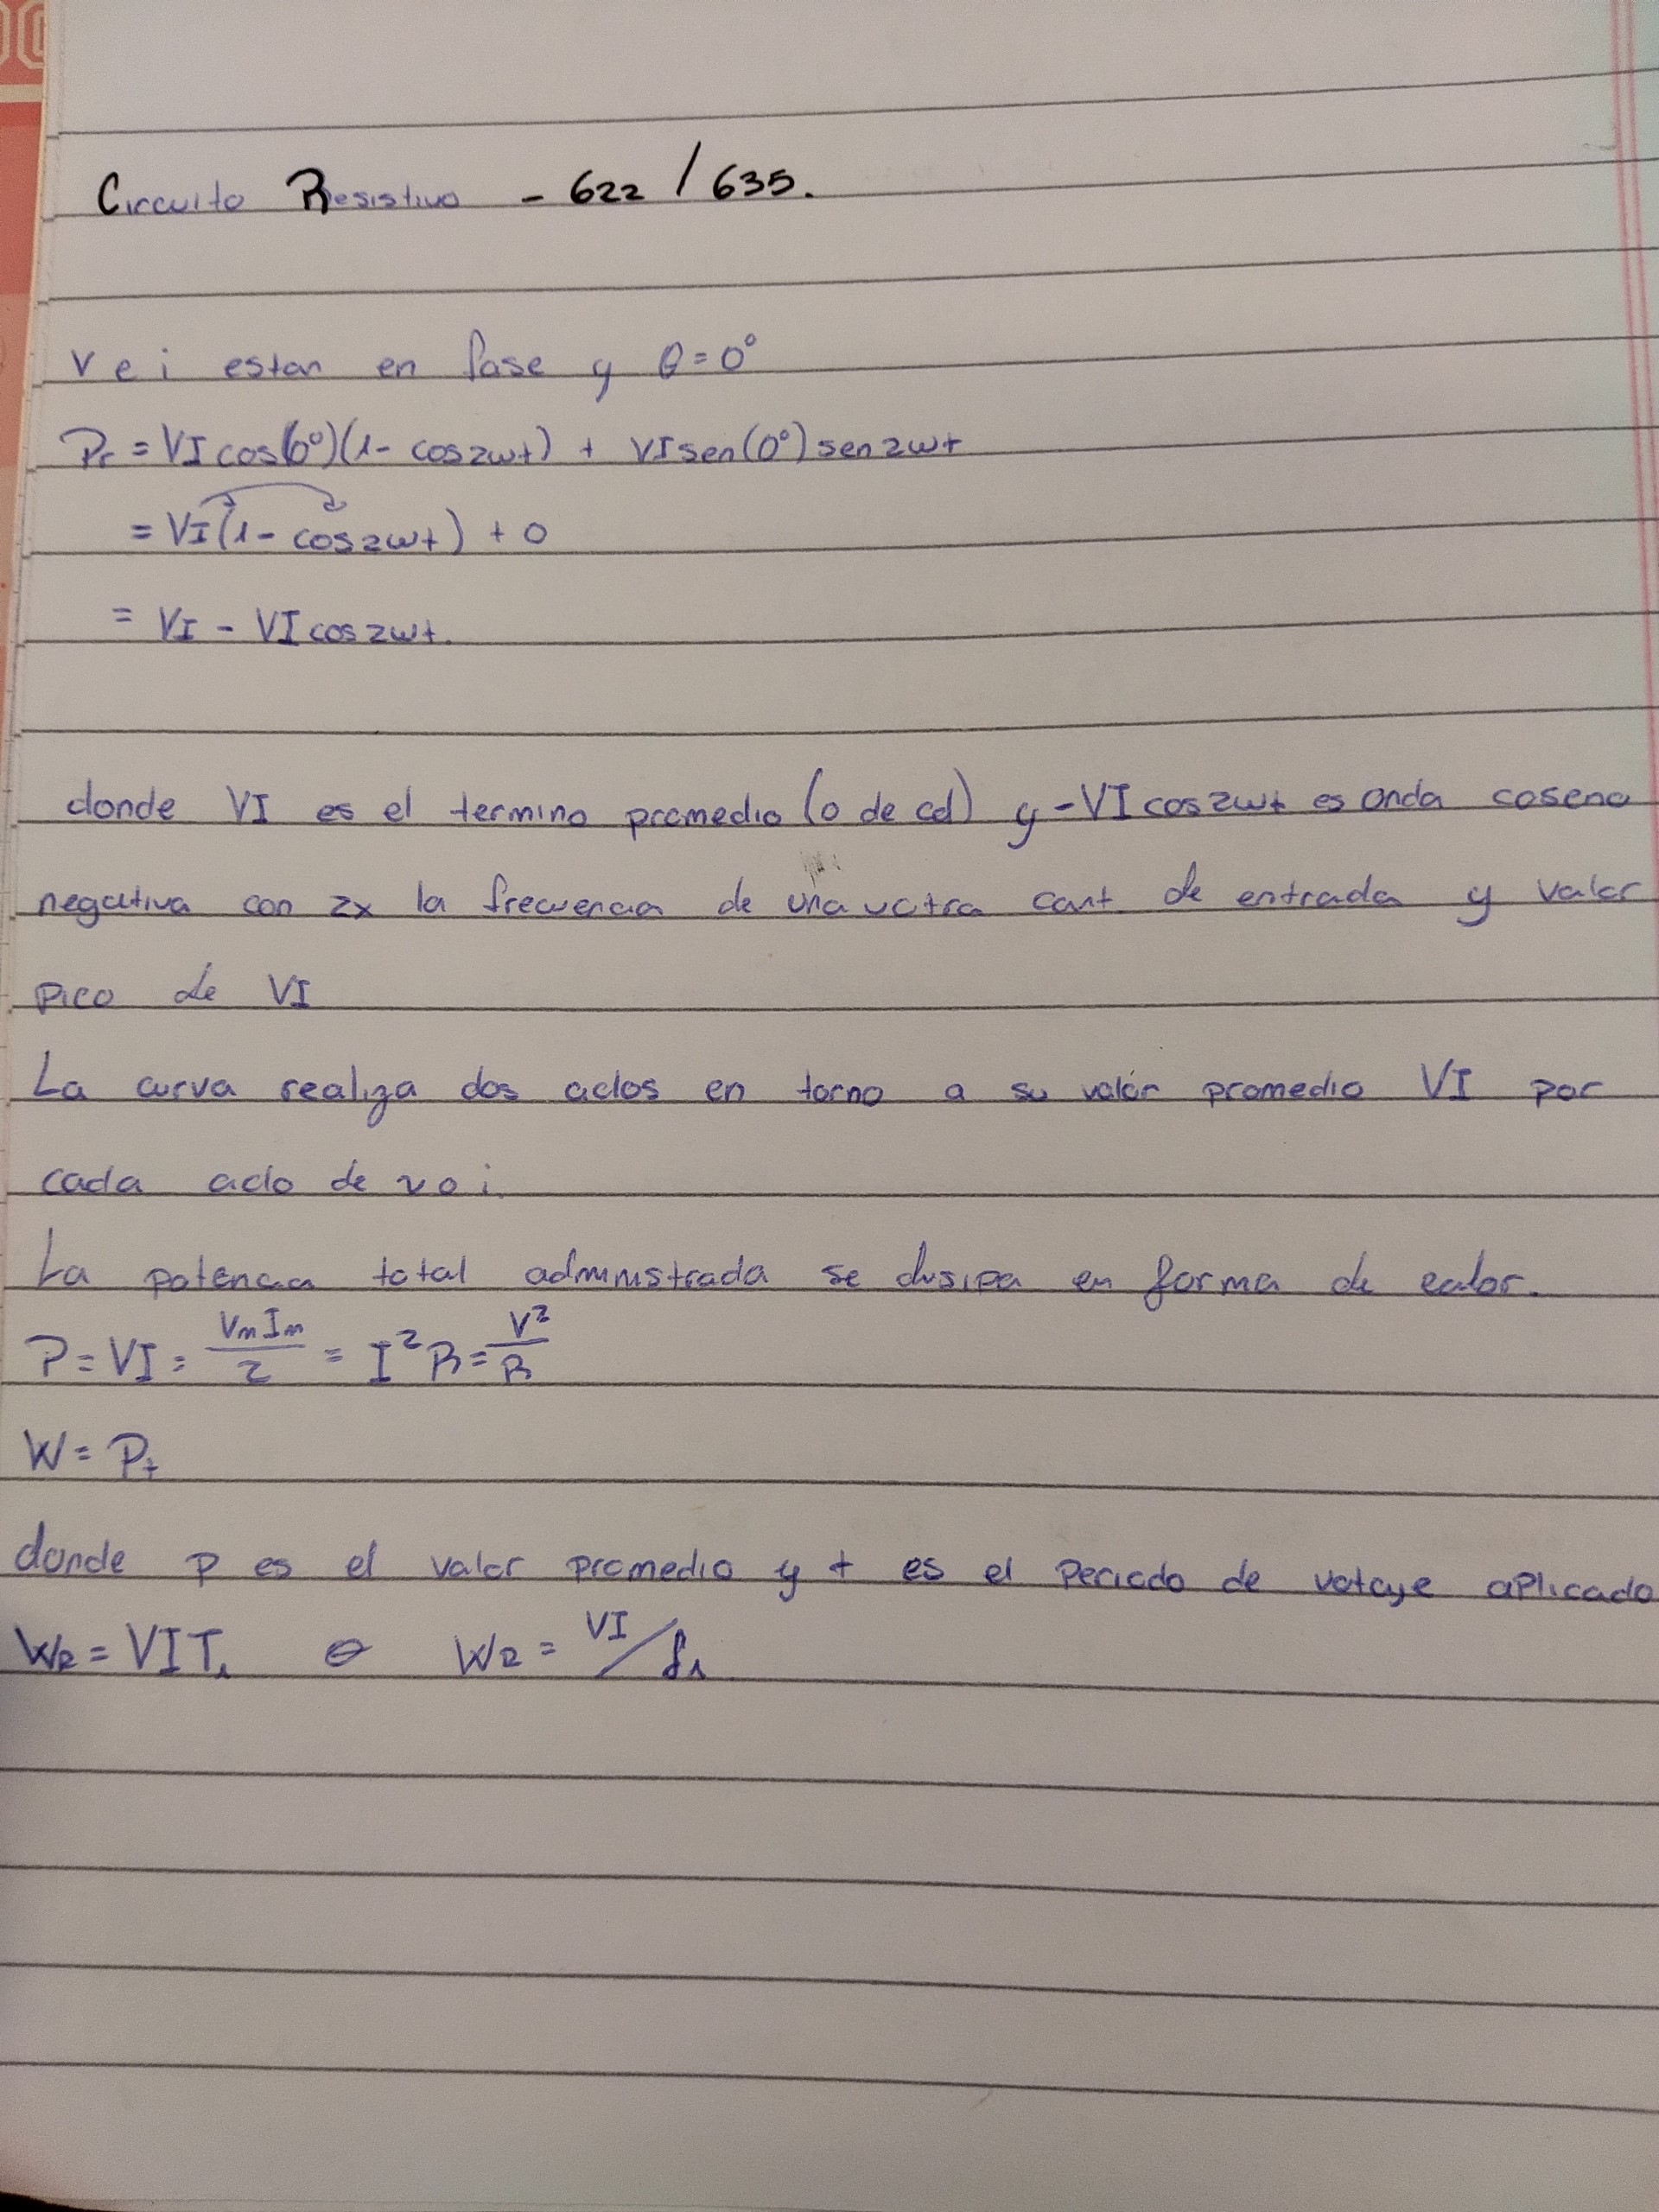 Circuito Resistivo - 622 / 635.
v e i estan en fase y θ = 0°
Pr = VI cos(0°)(1 - cos 2wt) + VI sen(0°) sen 2wt
= VI(1 - cos 2wt) + 0
= VI - VI cos 2wt.
donde VI es el termino promedio (o de cd) y - VI cos 2wt es onda coseno
negativa con 2x la frecuencia de una cant. de entrada y valor
pico de VI
La curva realiza dos ciclos en torno a su valor promedio VI por
cada ciclo de v o i.
La potencia total administrada se disipa en forma de calor.
P = VI = VmIm/2 = I²R = V²/R
W = Pt
donde P es el valor promedio y t es el Periodo de votaje aplicado
WR = VIT₁ o WR = VI/f₁